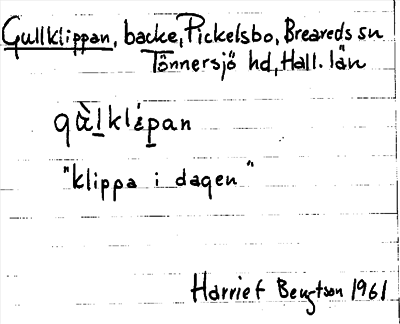 Gullklippan, backe, Pickelsbo, Breareds sn
Tönnersjö hd, Hall. län
gὰl̲klép̲an
"klippa i dagen"
Harriet Bengtson 1961